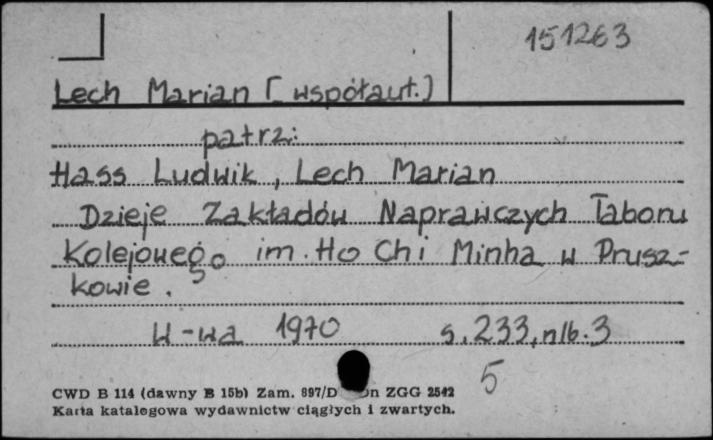 151263
Lech Marian [współaut.]
patrz:
Hass Ludwik, Lech Marian
Dzieje Zakładów Naprawczych Taboru
Kolejowego im. Ho Chi Minha w Prusz-
kowie.
W-wa 1970 s. 233, nlb. 3
5
CWD B 114 (dawny B 15b) Zam. 897/D ZGG 2542
Karta katalogowa wydawnictw ciągłych i zwartych.